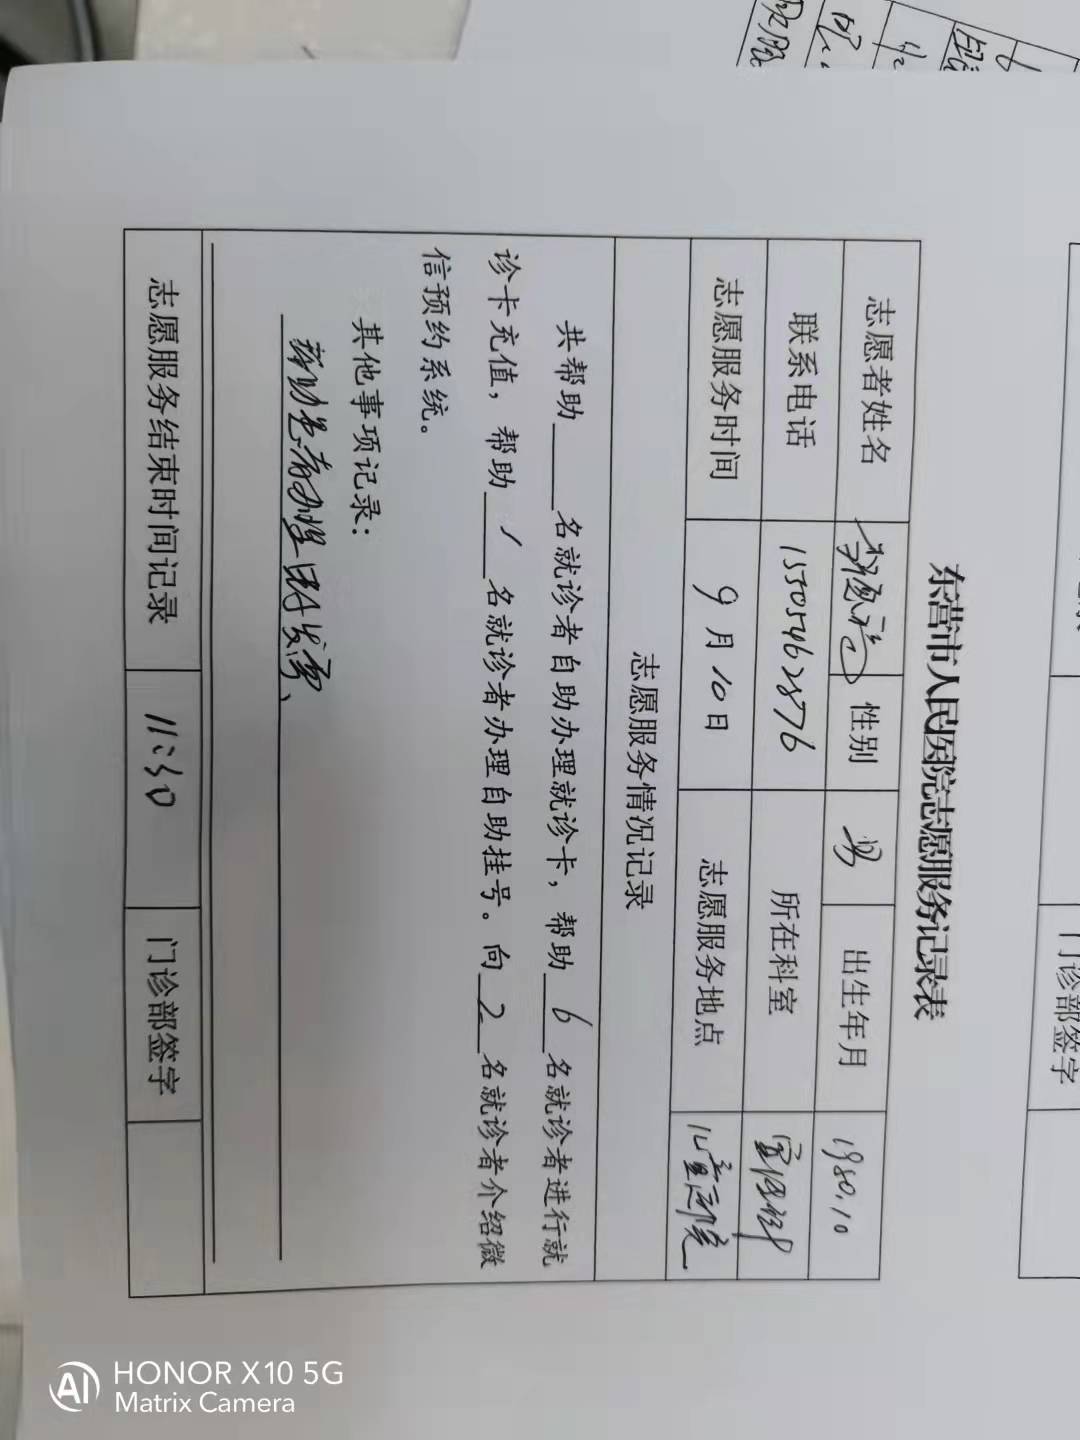 东营市人民医院志愿服务记录表
志愿者姓名 性别 男 出生年月 1980.10
联系电话 15505462876 所在科室 宣传科
志愿服务时间 9月10日 志愿服务地点 儿童医院
志愿服务情况记录
共帮助 名就诊者自助办理就诊卡,帮助6名就诊者进行就
诊卡充值,帮助1名就诊者办理自助挂号。向2名就诊者介绍微
信预约系统。
其他事项记录:
帮助患者办理
志愿服务结束时间记录 11:30 门诊部签字
门诊部签字
HONOR X10 5G
Matrix Camera
AI